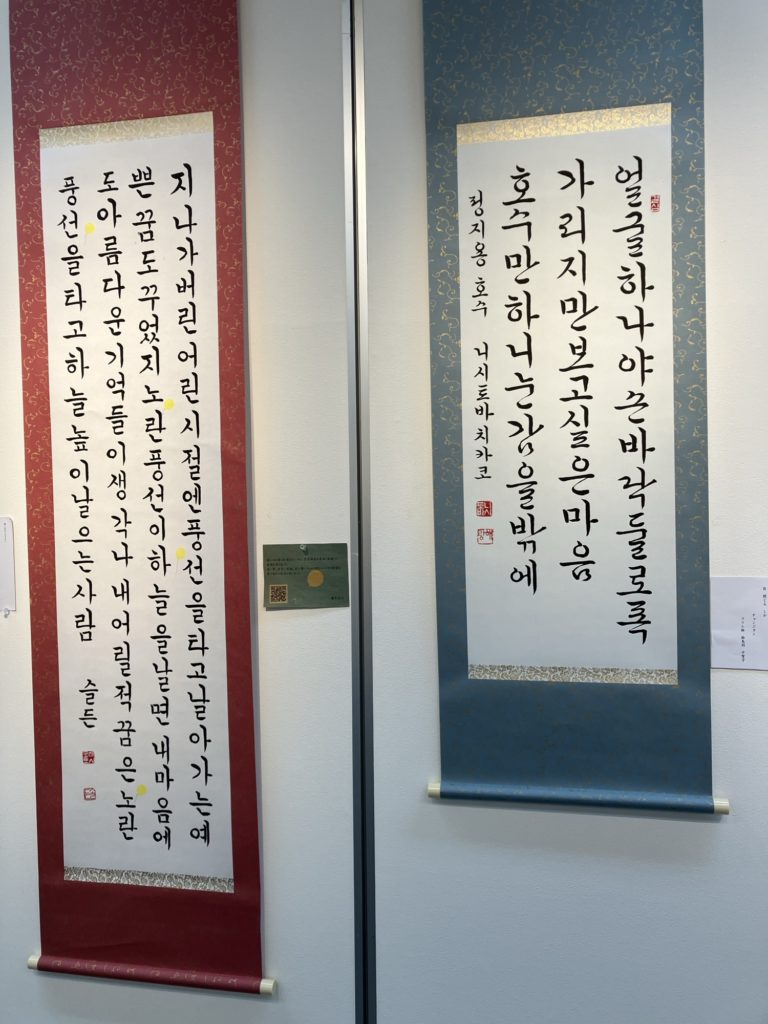 얼굴하나야손바닥둘로폭
가리지만보고싶은마음
호수만하니눈감을밖에
정지용 호수 니시토바치카코
지나가버린어린시절엔풍선을타고날아가는예
쁜꿈도꾸었지노란풍선이하늘을날면내마음에
도아름다운기억들이생각나내어릴적꿈은노란
풍선을타고하늘높이날으는사람 슬든